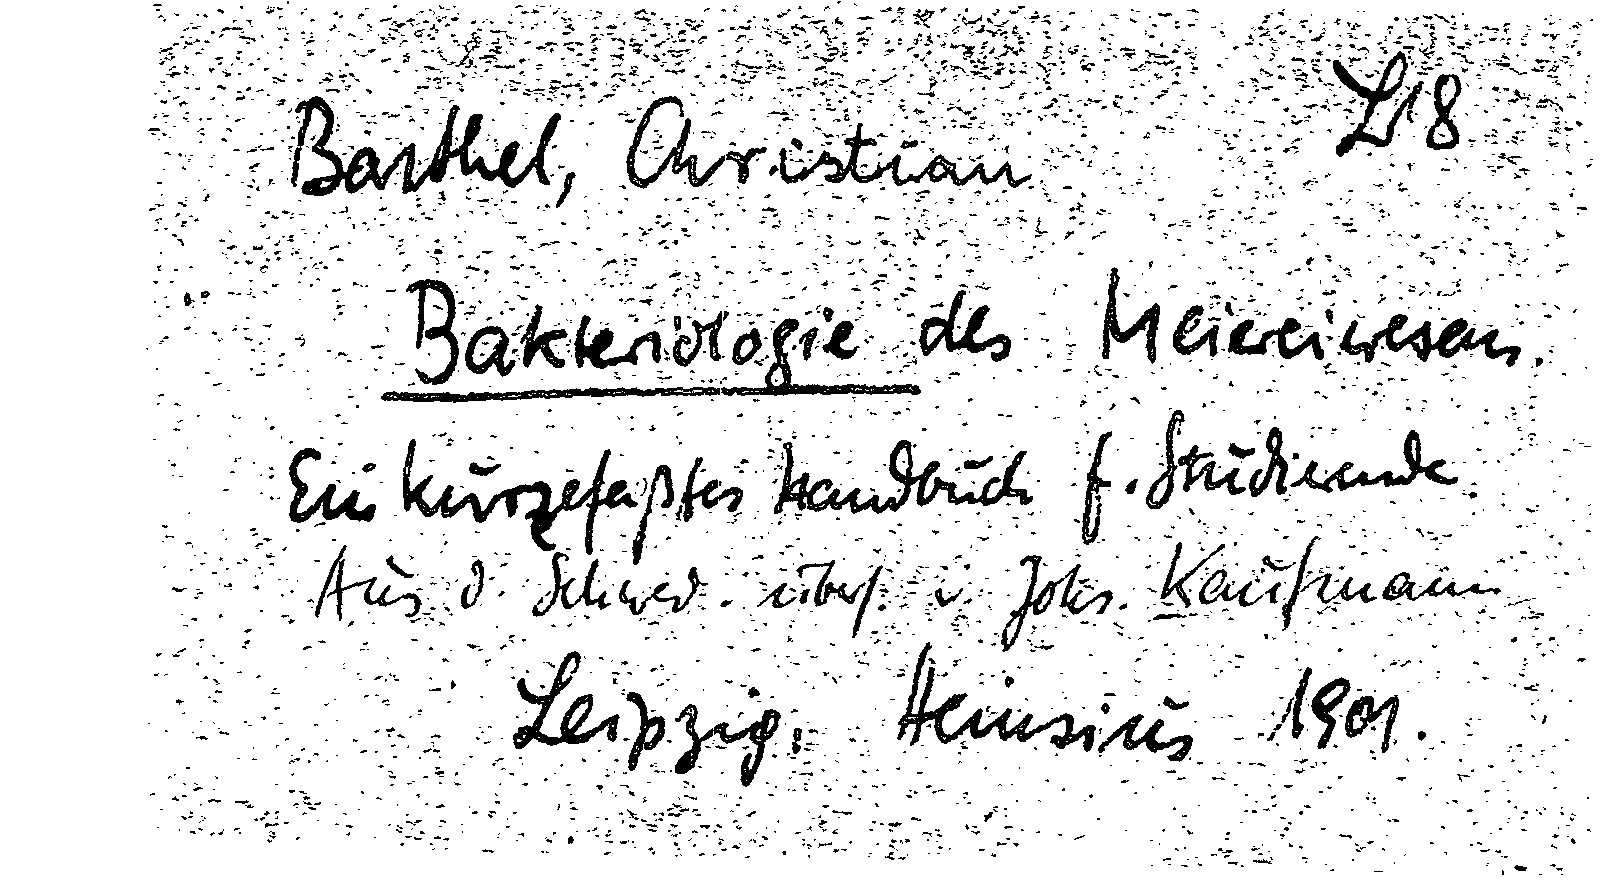 L18
Barthel, Christian
Bakteriologie des Meiereiwesens.
Ein kurzgefaßtes Handbuch f. Studierende
Aus d. Schwed. übers. v. Johs. Kaufmann
Leipzig, Heinsius 1901.